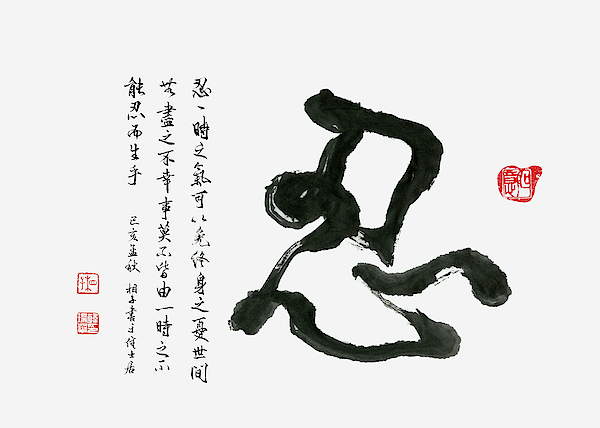 忍
忍一時之氣可以免終身之憂世間
無盡之不幸事莫不皆由一時之不
能忍而生乎
己亥孟秋 相子書于